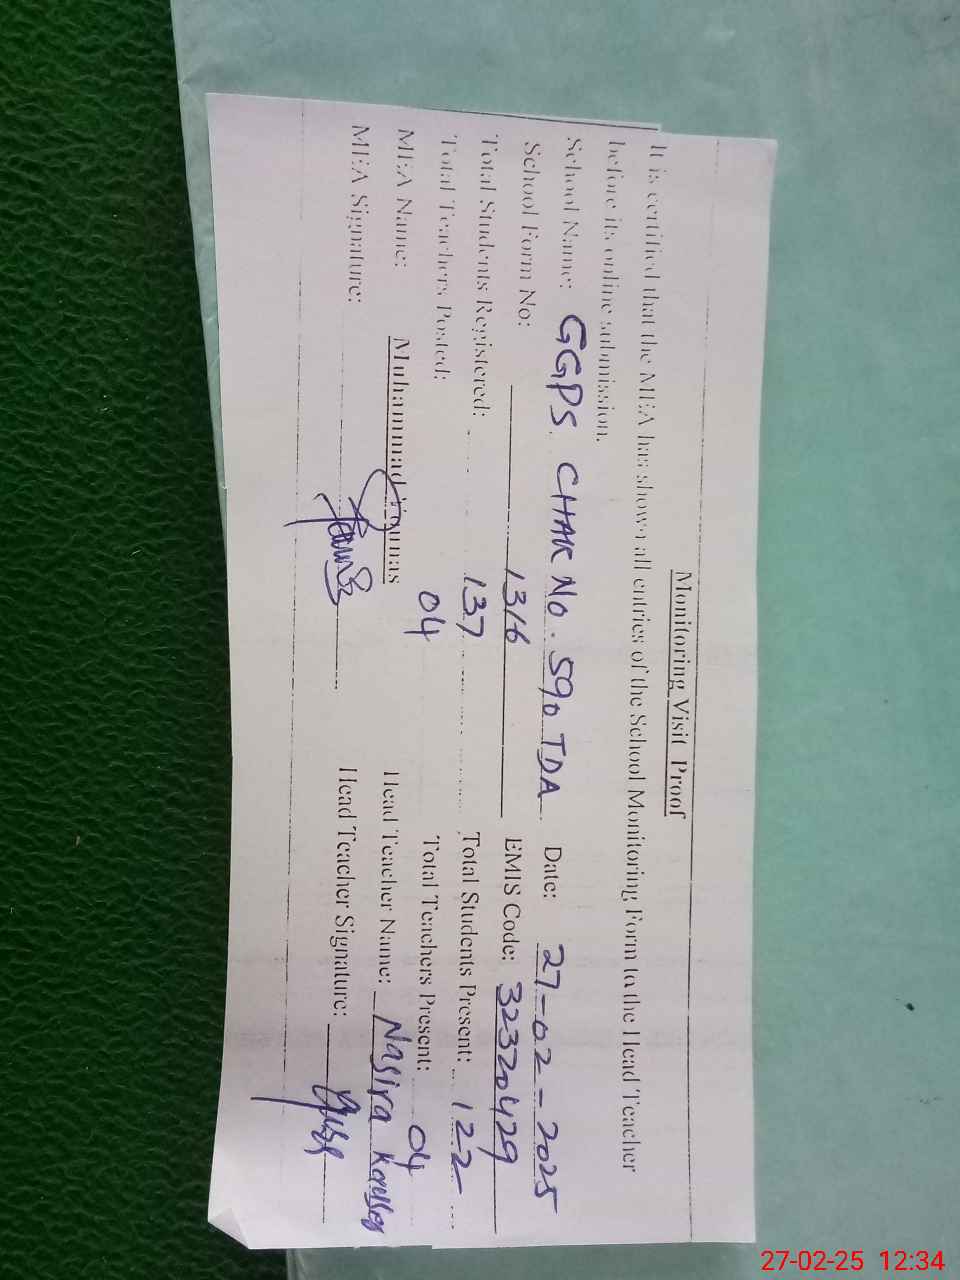 Monitoring Visit Proof
It is certified that the MEA has shown all entries of the School Monitoring Form to the Head Teacher
before its online submission.
School Name: GGPS CHAK No. 590 TDA Date: 27-02-2025
School Form No: 1316 EMIS Code: 32320429
Total Students Registered: 137 Total Students Present: 122
Total Teachers Posted: 04 Total Teachers Present: 04
MEA Name: Muhammad Younas Head Teacher Name: Nasira
MEA Signature: Head Teacher Signature:
27-02-25 12:34